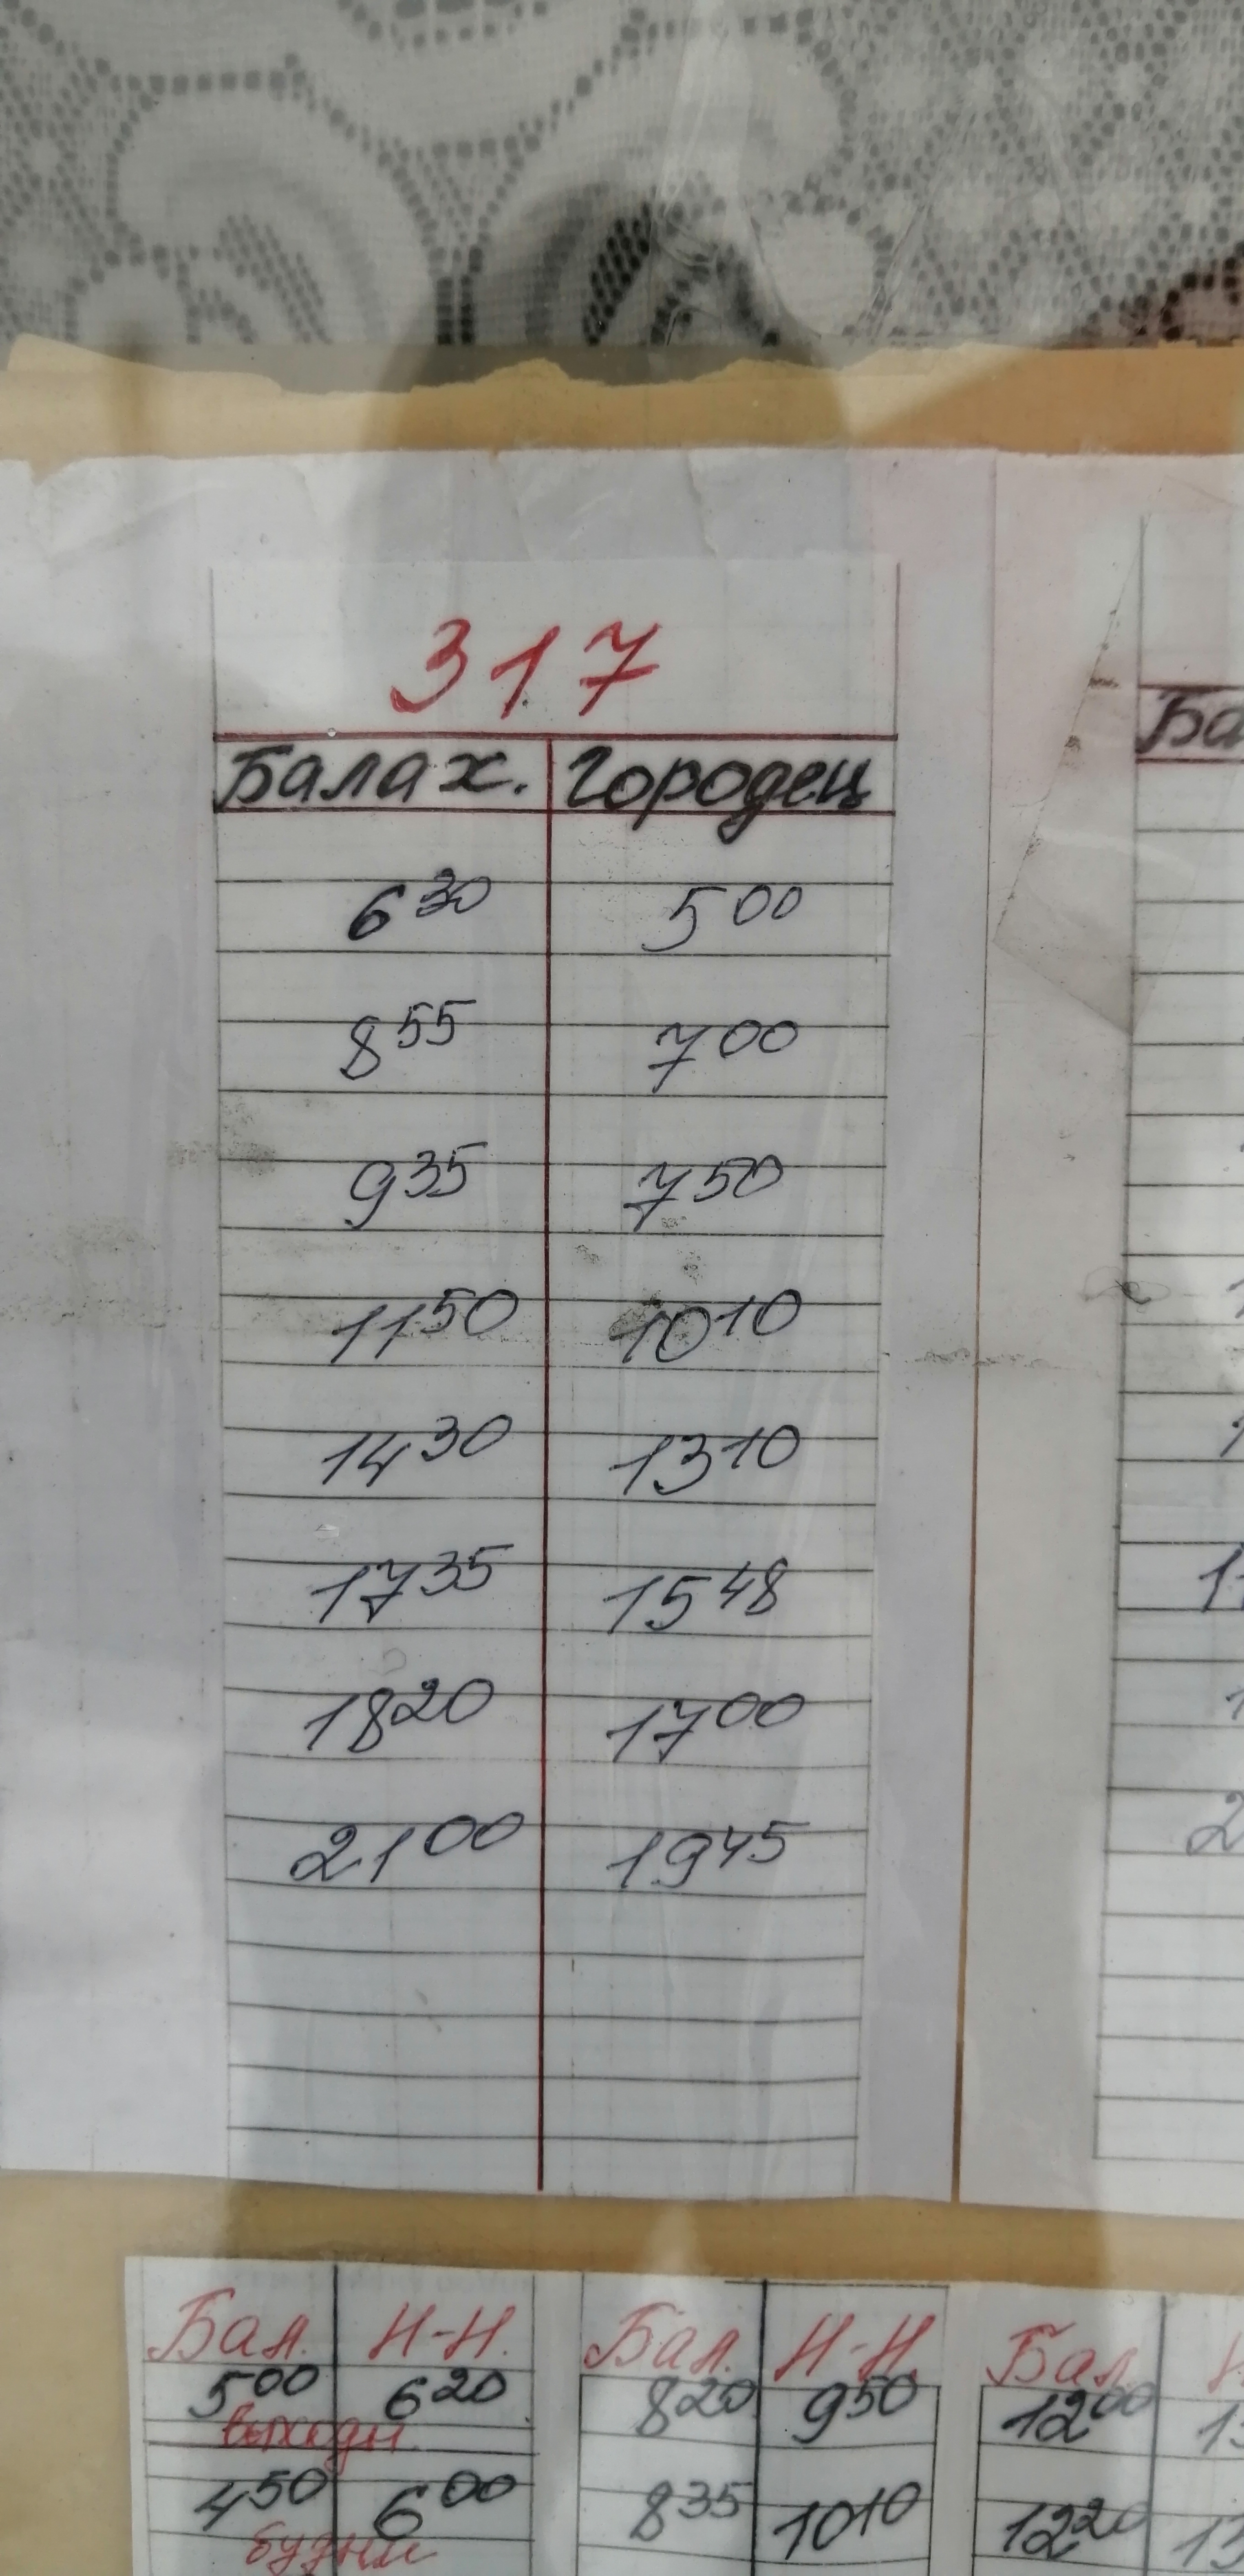 317
Балах. Городец
6³⁰ 5⁰⁰
8⁵⁵ 7⁰⁰
9³⁵ 7⁵⁰
11⁵⁰ 10¹⁰
14³⁰ 13¹⁰
17³⁵ 15⁴⁸
18²⁰ 17⁰⁰
21⁰⁰ 19⁴⁵
Ба
Бал. Н-Н.
5⁰⁰ 6²⁰
выходн.
4⁵⁰ 6⁰⁰
будни
Бал. Н-Н
8²⁰ 9⁵⁰
8³⁵ 10¹⁰
Бал.
12⁰⁰
12²⁰